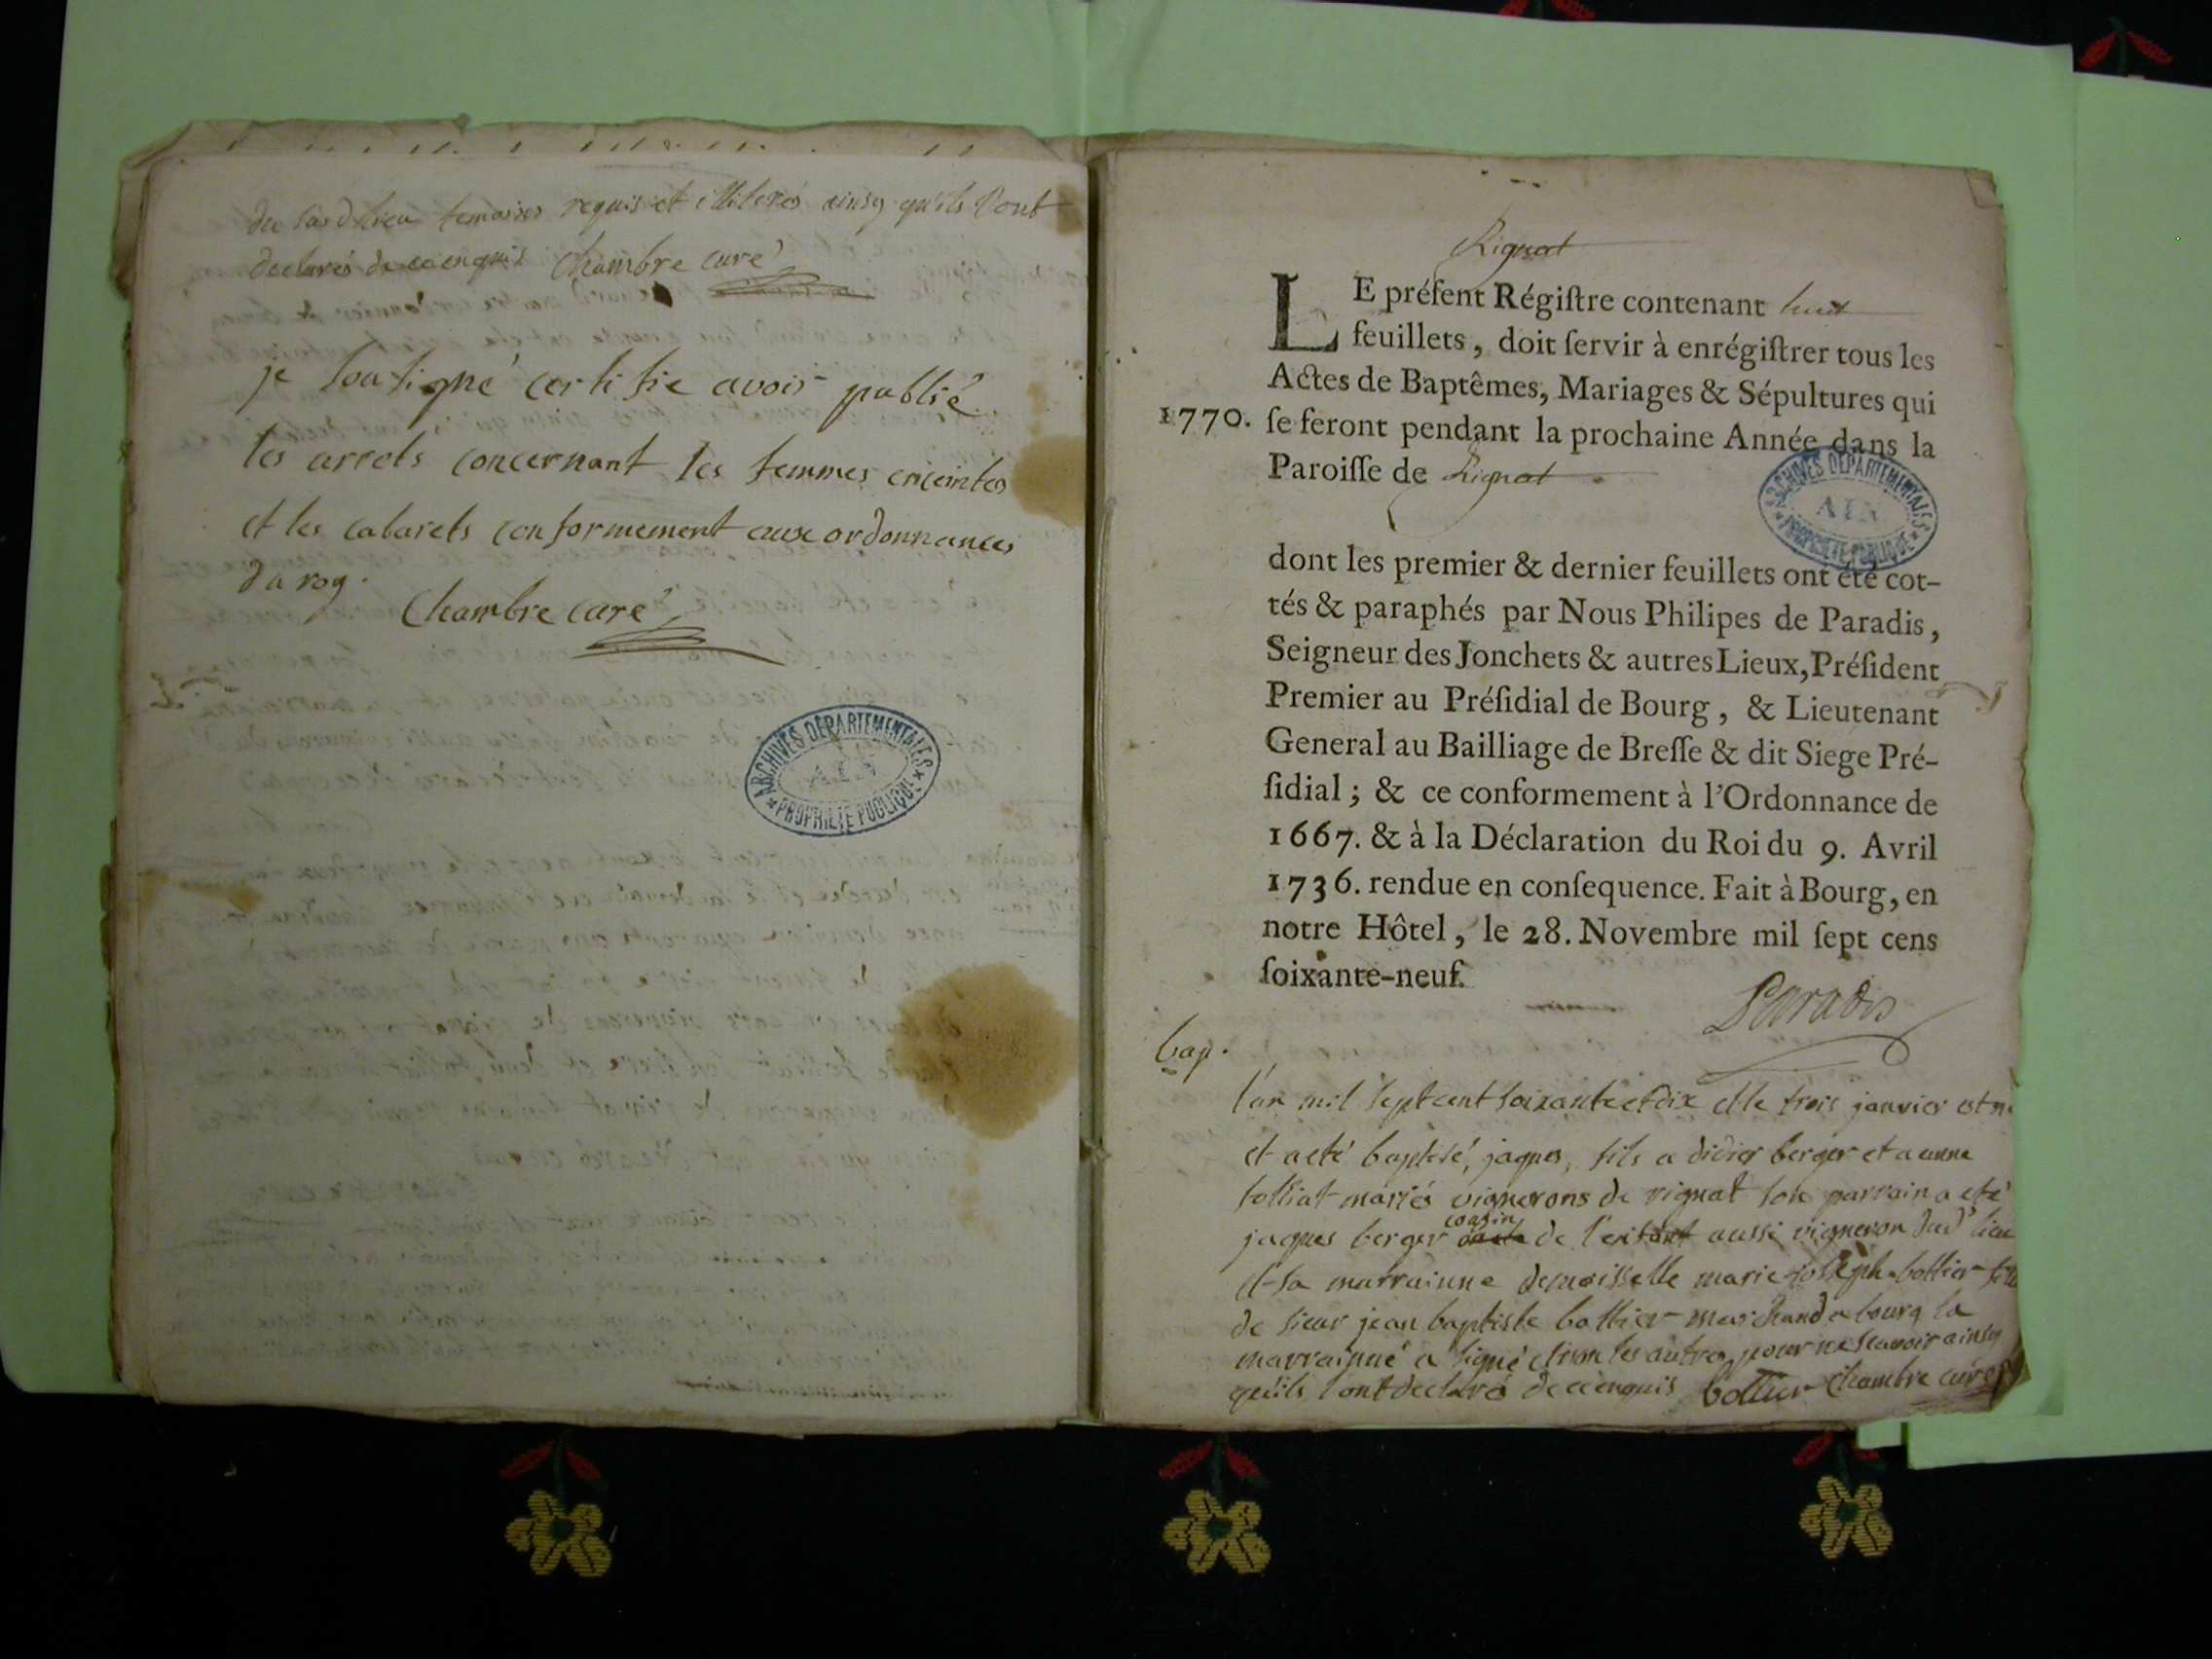 du sasd lieu temoins requis et illiterés ainsy qu'ils l'ont
declarés de ce enquis Chambre curé
je soussigné certifie avoir publié
les arrets concernant les femmes enceintes
et les cabarets conformement aux ordonnances
du roy.
Chambre curé
ARCHIVES DÉPARTEMENTALES
AIN
PROPRIÉTÉ PUBLIQUE
Rignat
LE préſent Régiſtre contenant huit
feuillets, doit ſervir à enrégiſtrer tous les
Actes de Baptêmes, Mariages & Sépultures qui
1770. ſe feront pendant la prochaine Année dans la
Paroiſſe de Rignat
ARCHIVES DÉPARTEMENTALES
AIN
PROPRIÉTÉ PUBLIQUE
dont les premier & dernier feuillets ont été cot-
tés & paraphés par Nous Philipes de Paradis,
Seigneur des Jonchets & autres Lieux, Préſident
Premier au Préſidial de Bourg, & Lieutenant
General au Bailliage de Breſſe & dit Siege Pré-
ſidial ; & ce conformement à l'Ordonnance de
1667. & à la Déclaration du Roi du 9. Avril
1736. rendue en conſequence. Fait à Bourg, en
notre Hôtel, le 28. Novembre mil ſept cens
ſoixante-neuf.
Paradis
bap.
l'an mil sept cent soixante et dix et le trois janvier est né
et a eté baptisé, jaques, fils a didier berger et a anne
folliat mariés vignerons de rignat son parrain a eté
jaques berger cousin de l'enfant aussi vigneron dud lieu
et sa marrainne demoisselle marie josseph bottier fille
de sieur jean baptiste bottier marchand a bourg la
marrainne a signé et non les autres pour ne scavoir ainsy
qu'ils l'ont declaré de ce enquis bottier Chambre curé